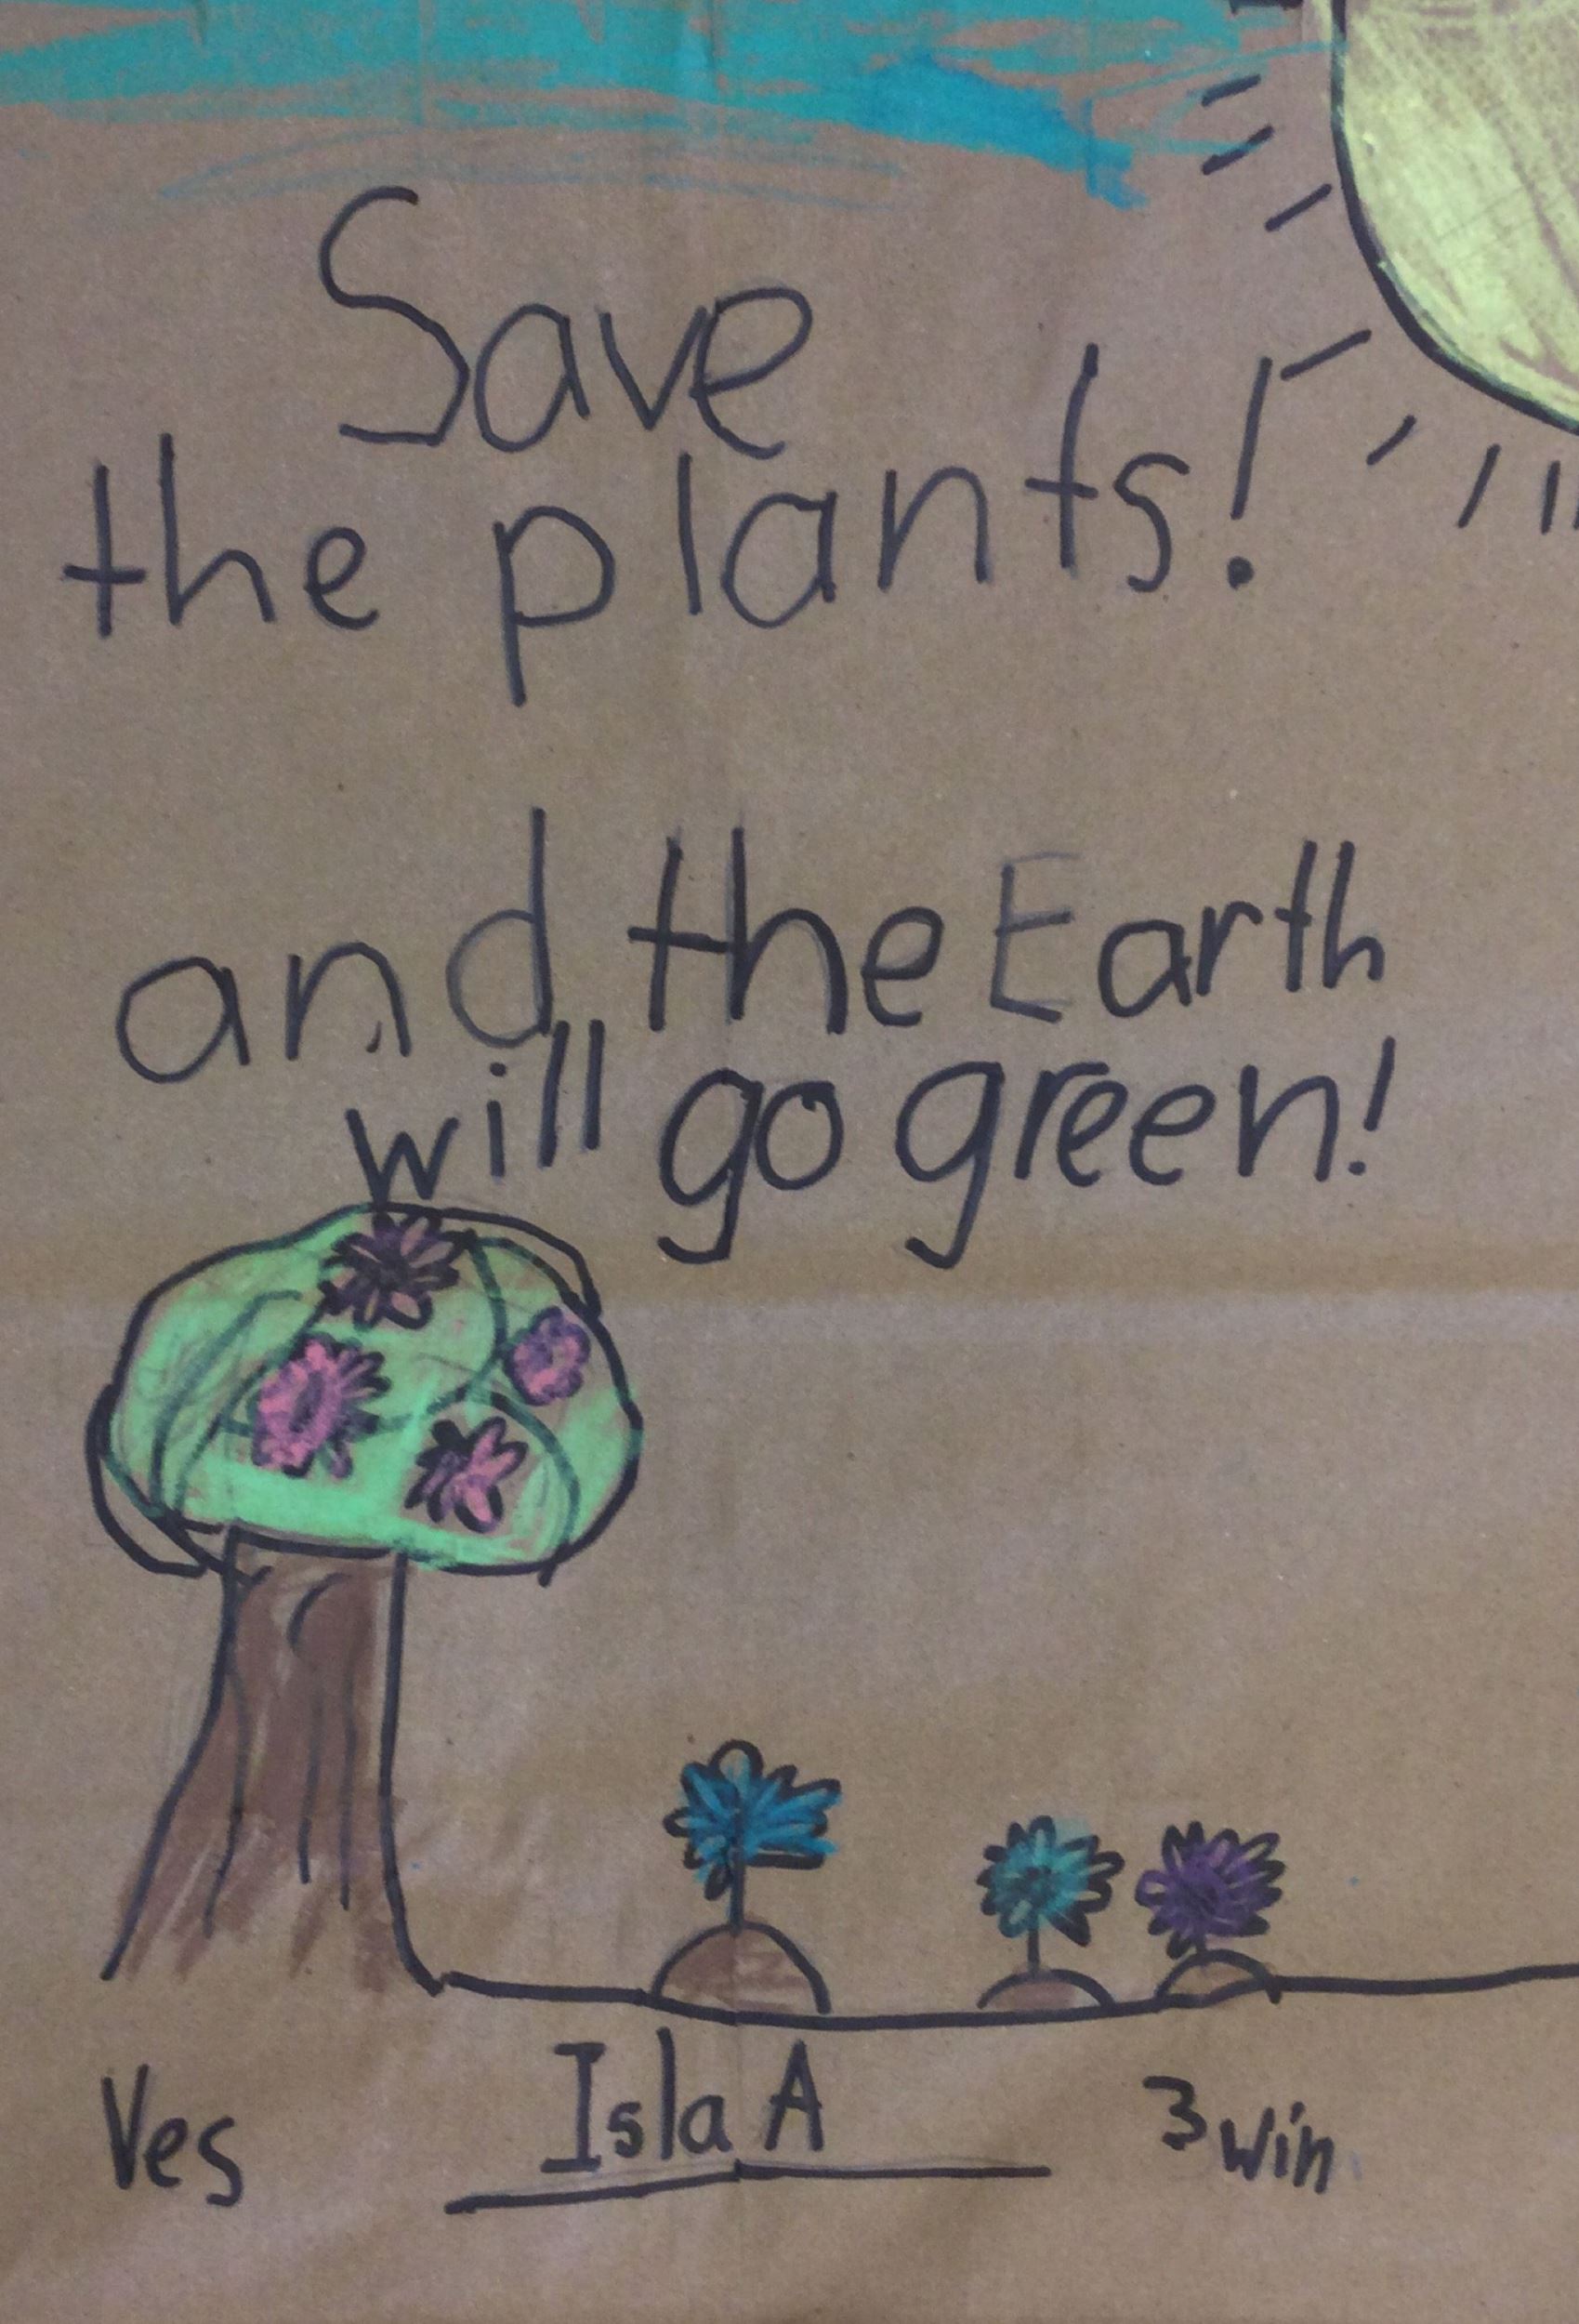 Save
the plants!
and the Earth
will go green!
Ves Isla A 3win